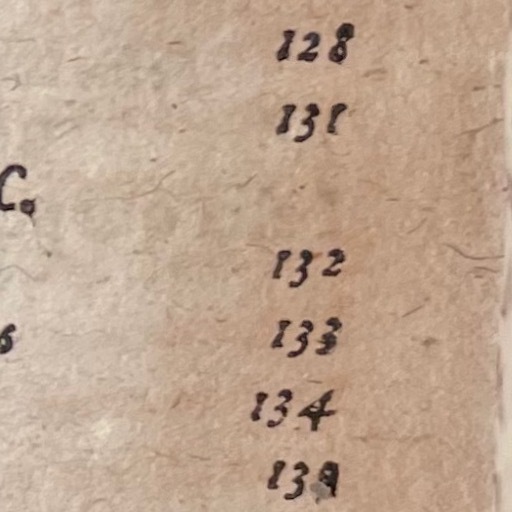 128
131
C.
132
6 133
134